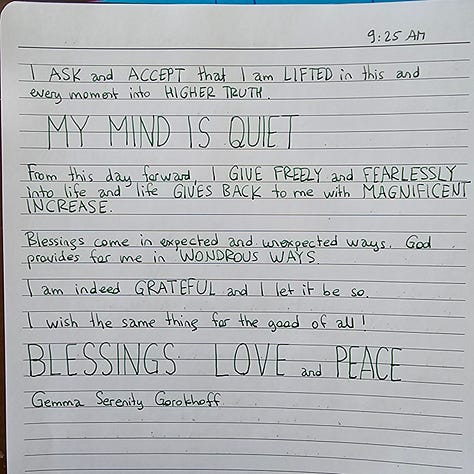 9:25 AM
I ASK and ACCEPT that I am LIFTED in this and
every moment into HIGHER TRUTH.
MY MIND IS QUIET
From this day forward, I GIVE FREELY and FEARLESSLY
into life and life GIVES BACK to me with MAGNIFICENT
INCREASE.
Blessings come in expected and unexpected ways. God
provides for me in WONDROUS WAYS.
I am indeed GRATEFUL and I let it be so.
I wish the same thing for the good of all!
BLESSINGS LOVE and PEACE
Gemma Serenity Gorokhoff